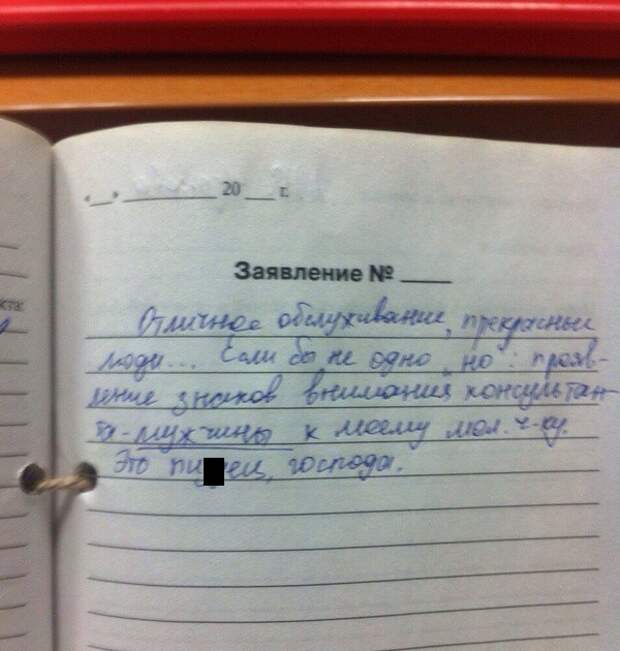 «__» ________ 20 ___ г.
Заявление № ____
Отличное обслуживание, прекрасные
люди... Если бы не одно "но": прояв-
ление знаков внимания консультан-
та-мужчины к моему мол. ч-ку.
Это пи█ец, господа.